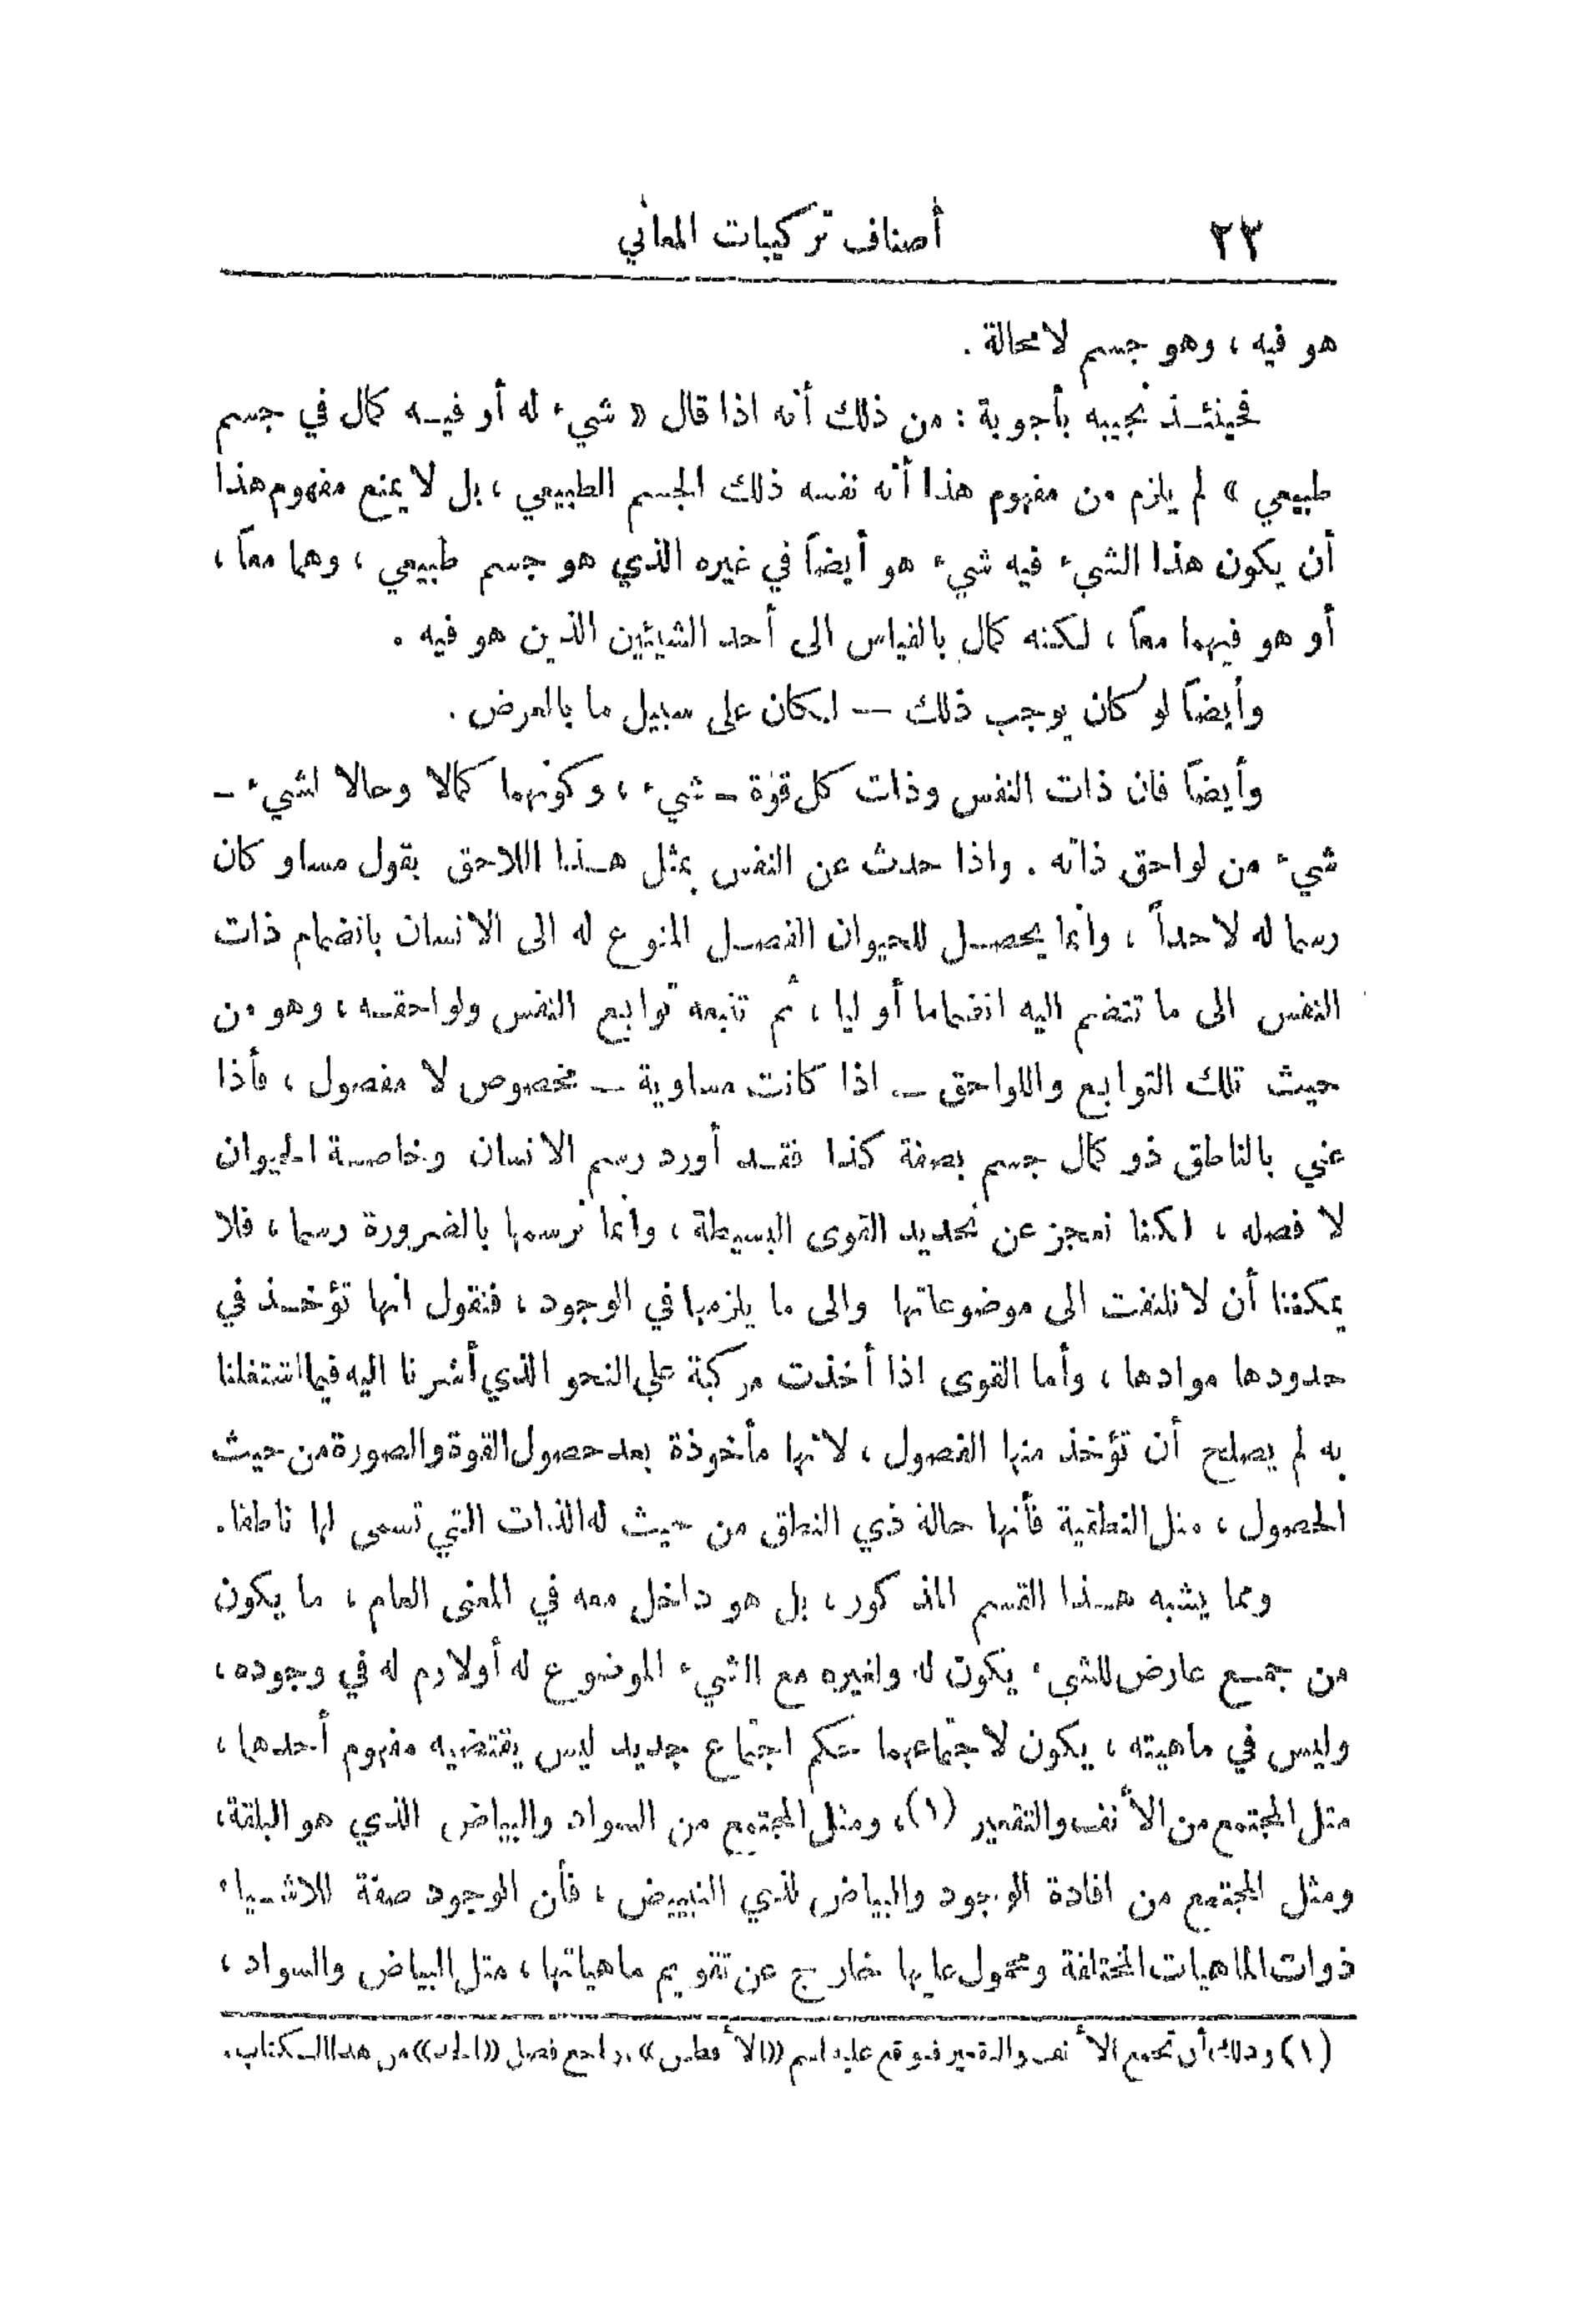 ٢٣ أصناف تركيبات المعاني
هو فيه ، وهو جسم لا محالة .
فحينئذ نجيبه بأجوبة : من ذلك أنه اذا قال « شيء له أو فيه كمال في جسم
طبيعي » لم يلزم من مفهوم هذا أنه نفسه ذلك الجسم الطبيعي ، بل لا يمنع مفهوم هذا
أن يكون هذا الشيء فيه شيء هو أيضاً في غيره الذي هو جسم طبيعي ، وهما معاً ،
أو هو فيهما معاً ، لكنه كمال بالقياس الى أحد الشيئين الذين هو فيه .
وأيضاً لو كان يوجب ذلك — لكان على سبيل ما بالعرض .
وأيضاً فان ذات النفس وذات كل قوة – شيء ، وكونهما كمالا وحالا لشيء –
شيء من لواحق ذاته . واذا حدث عن النفس بمثل هذا اللاحق بقول مساو كان
رسما له لا حداً ، وانما يحصل للحيوان الفصل المنوع له الى الانسان بانضمام ذات
النفس الى ما تنضم اليه انضماما أوليا ، ثم تتبعه توابع النفس ولواحقه ، وهو من
حيث تلك التوابع واللواحق – اذا كانت مساوية – مخصوص لا مفصول ، فأذا
عني بالناطق ذو كمال جسم بصفة كذا فقد أورد رسم الانسان وخاصة الحيوان
لا فصله ، لكننا نعجز عن تحديد القوى البسيطة ، وانما نرسمها بالضرورة رسما ، فلا
يمكننا أن لا نلتفت الى موضوعاتها والى ما يلزمها في الوجود ، فنقول انها تؤخذ في
حدودها موادها ، وأما القوى اذا أخذت مركبة على النحو الذي أشرنا اليه فيما اشتغلنا
به لم يصلح أن تؤخذ منها الفصول ، لانها مأخوذة بعد حصول القوة والصورة من حيث
الحصول ، مثل النطقية فأنها حالة ذي النطق من حيث له الذات التي تسمى لها ناطقا .
ومما يشبه هذا القسم المذكور ، بل هو داخل معه في المعنى العام ، ما يكون
من جمع عارض للشيء يكون له ولغيره مع الشيء الموضوع له أولازم له في وجوده ،
وليس في ماهيته ، يكون لاجتماعهما حكم اجتماع جديد ليس يقتضيه مفهوم أحدهما ،
مثل المجتمع من الأنف والتقعير (١) ، ومثل المجتمع من السواد والبياض الذي هو البلقة ،
ومثل المجتمع من افادة الوجود والبياض لذي التبييض ، فأن الوجود صفة للاشياء
ذوات الماهيات المختلفة ومحمول عليها خارج عن تقويم ماهياتها ، مثل البياض والسواد ،
(١) وذلك أن تجمع الأنف والتقعير فيوقع عليه اسم «الأفطس» . راجع فصل «الحد» من هذا الكتاب .